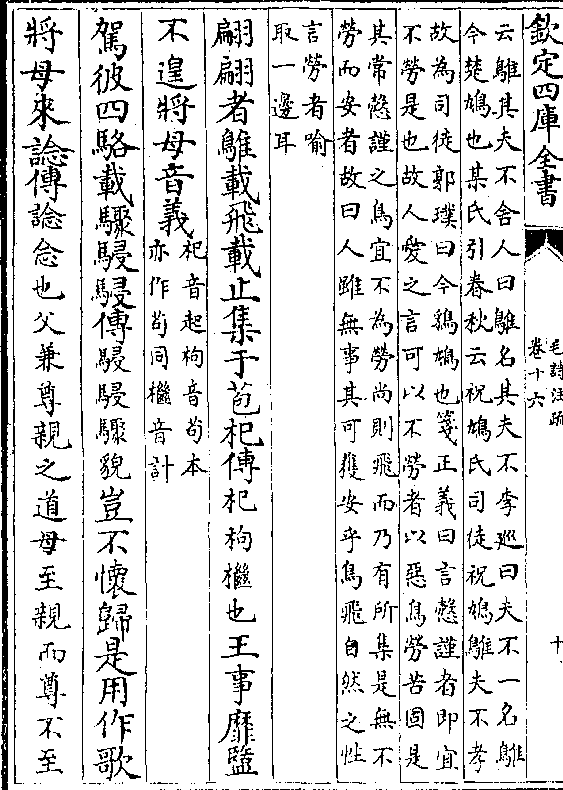 欽定四庫全書
毛詩注疏
卷十六
十
云鵻其夫不舍人曰鵻名其夫不李巡曰夫不一名鵻
今楚鳩也某氏引春秋云祝鳩氏司徒祝鳩鵻夫不孝
故為司徒郭璞曰今鵓鳩也箋正義曰言慤謹者即宜
不勞是也故人愛之言可以不勞者以惡鳥勞苦固是
其常慤謹之鳥宜不為勞尚則飛而乃有所集是無不
勞而安者故曰人雖無事其可獲安乎鳥飛自然之性
言勞者喻
取一邊耳
翩翩者鵻載飛載止集于苞杞傳杞枸檵也王事靡盬
不遑將母音義
杞音起枸音苟本
亦作苟同檵音計
駕彼四駱載驟駸駸傳駸駸驟貌豈不懷歸是用作歌
將母來諗傳諗念也父兼尊親之道母至親而尊不至